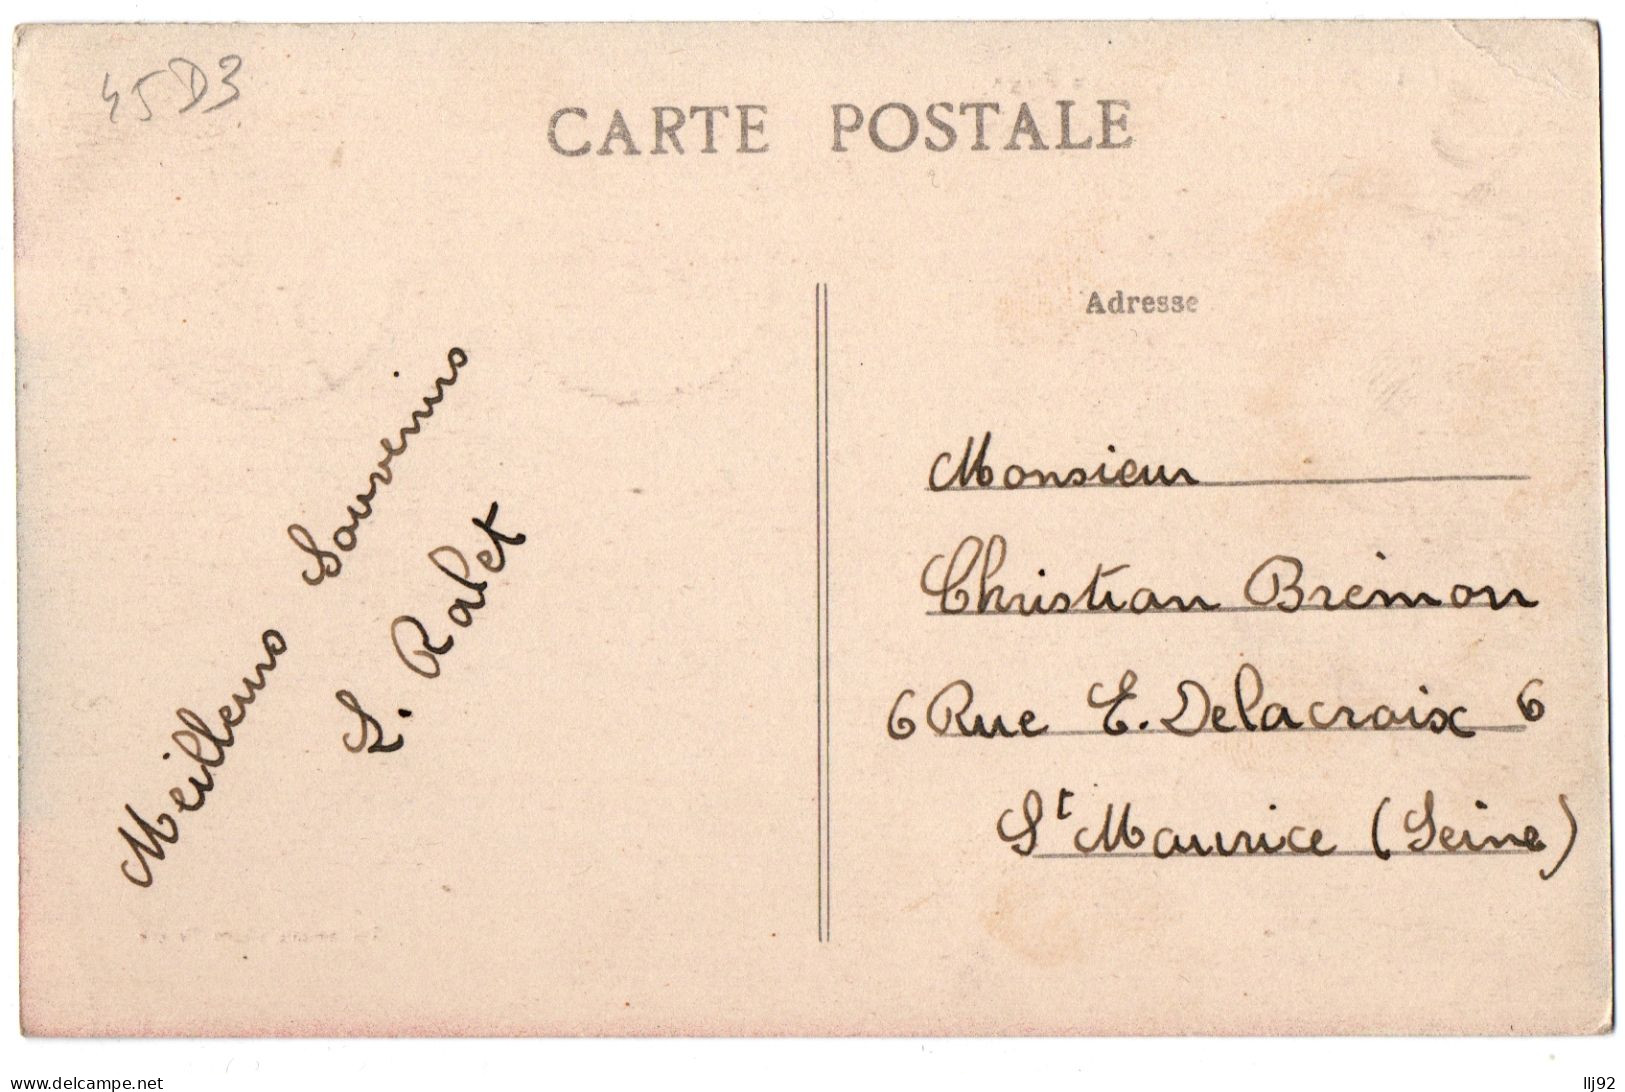 45D3
CARTE POSTALE
Adresse
Meilleurs Souvenirs
L. Ralet
Monsieur
Christian Bremon
6 Rue E. Delacroix 6
St Maurice (Seine)
www.delcampe.net
llj92